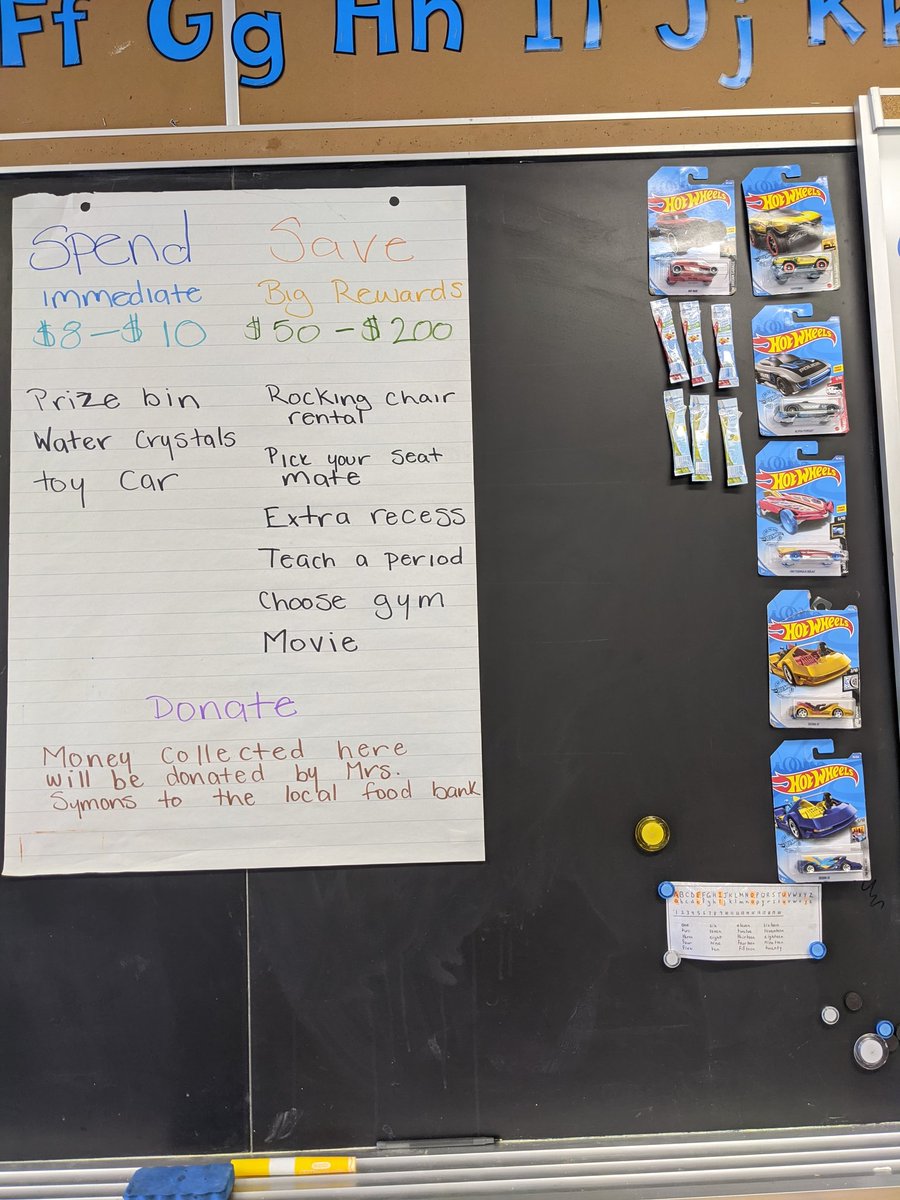 Ff Gg Hh Ii Jj Kk
Spend
Immediate
$8 - $10
Prize bin
Water Crystals
toy Car
Save
Big Rewards
$50 - $200
Rocking chair
rental
Pick your seat
mate
Extra recess
Teach a period
Choose gym
Movie
Donate
Money collected here
will be donated by Mrs.
Symons to the local food bank
HOT WHEELS
HOT WHEELS
HOT WHEELS
HOT WHEELS
HOT WHEELS
HOT WHEELS
ABCDEFGHIJKLMNOPQRSTUVWXYZ